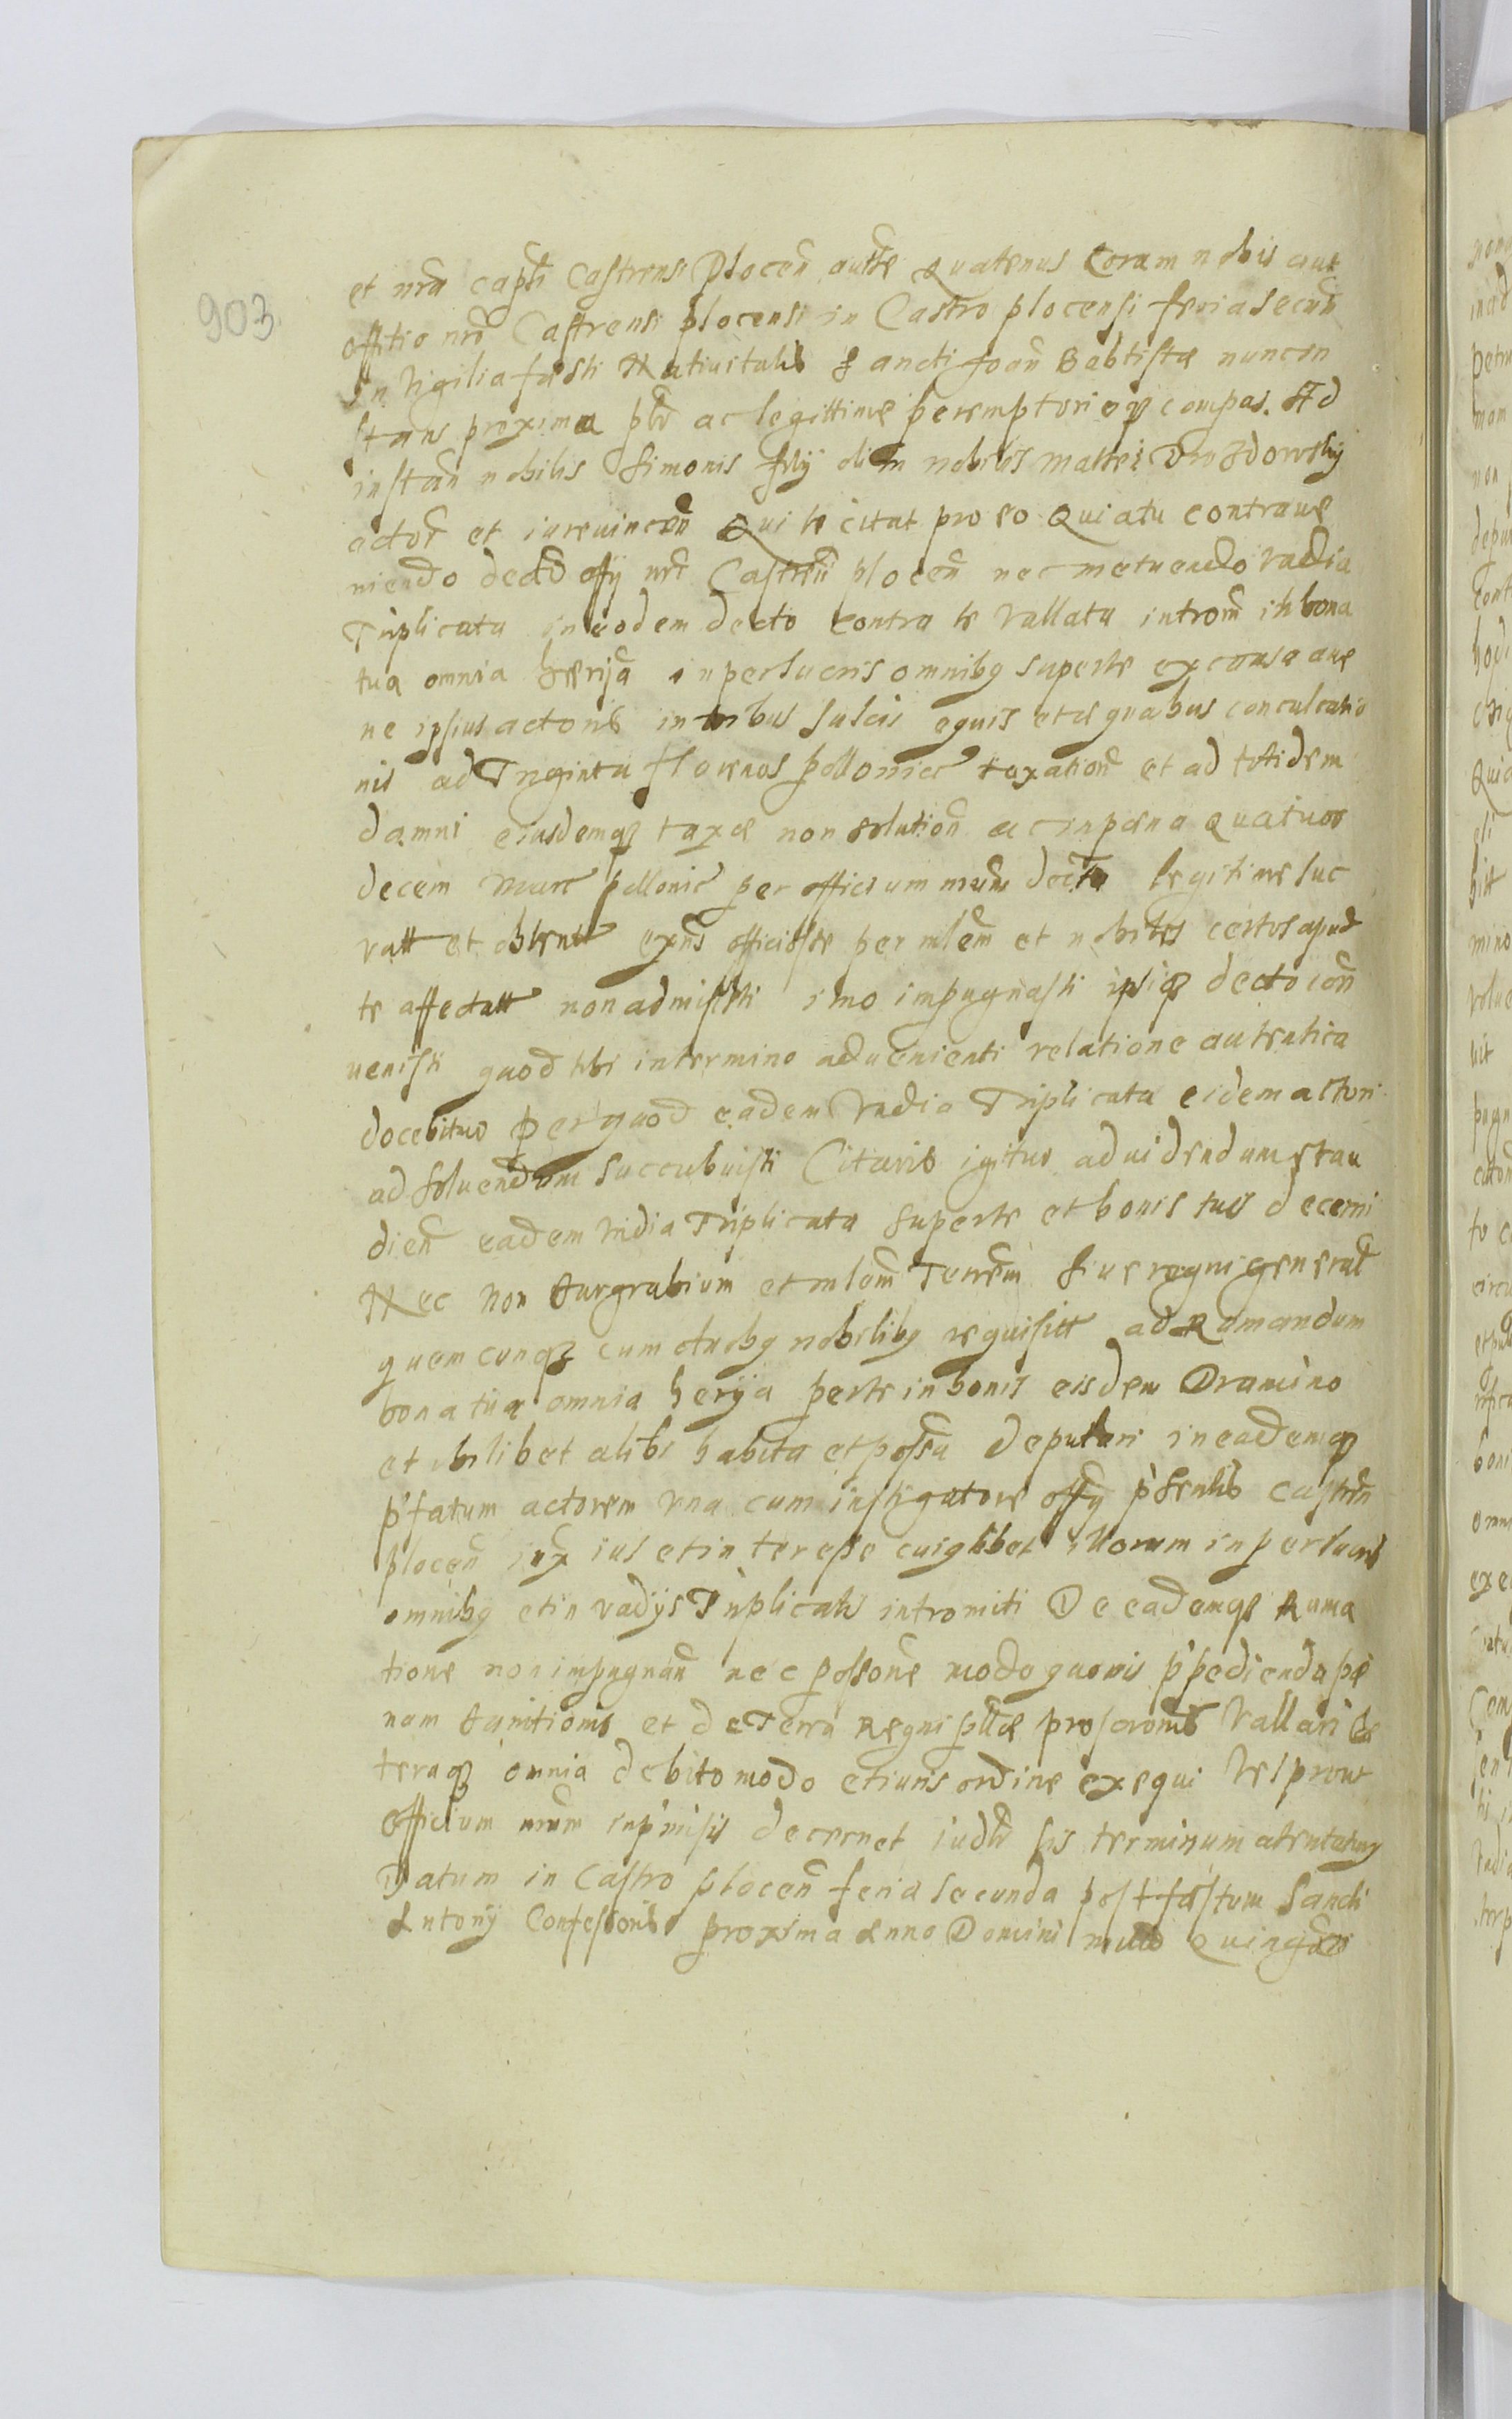 903.
et nrã capti Castrensi Plocen̄ autte Quatenus Coram nobis aut
offitio nrō Castrensi plocensi in Castro plocensi feria secun̄
In Vigilia fæsti Natiuitatis Sancti Joan̄ Babtistæ nunc in
stans proxima pltr ac legittime peremptorieqȝ compas. Ad
instan̄ nobilis Simonis filij olim nobilis Mattei Drozdowskij
actor̄ et iureuincen̄ Qui te citat pro eo Quia tu contraue
niendo decto offij nrī Castren̄ plocen̄ nec metuendo Vadia
Triplicata in eodem decto contra te Vallata introm̄ in bona
tua omnia hærija in perlucris omnibȝ super te ex causa aue
ne ipsius actoris in tribus sulcis equis et a grabus conculcatio
nis ad Triginta florenos pollonic taxation̄ et ad totidem
damni eiusdemqȝ taxæ non solution̄ ac in pæna Quatuor
decem Marc pollonic per officium nrum decta legitime luc
ratt et obtentt exn̄s officiose per mlem̄ et nobiles certos apud
te affectatt non admisisti imo impugnasti ipsiqȝ decto con̄
uenisti quod tibi in termino aduenienti relatione autentica
docebitur per quod eadem Vadia Triplicata eidem actori
ad soluendum succubuisti Citaris igitur ad uidendum et au
dien̄ eadem Vadia Triplicata super te et bonis tuis decerni
Nec non Burgrabium et mlem̄ Terrem̄ siue regni general̄
quemcunqȝ cum duobȝ nobilibȝ requisitt ad Rumandum
bona tua omnia herija per te in bonis eisdem Dramino
et ubilibet alibi habita et possa deputari in eademqȝ
p̄fatum actorem vna cum instigatore offij p̄sentis Castren̄
plocen̄ iux̄ ius et interesse cuiȝlibet illorum in perlucris
omnibȝ et in vadijs Triplicatis intromiti De eademqȝ Ruma
tione non impugnan̄ nec possone modo quouis p̄pedienda pæ
nam banitionis et de Terra Regni plliæ proscronis Vallari Cæ
teraqȝ omnia debito modo et iuris ordine exequi Vel prout
officium nrum in p̄missis decernet iudlr sis terminum atentaturȝ
Datum in Castro plocen̄ feria secunda post fæstum Sancti
Antonij Confessoris proxima Anno Domini millo Quingmo